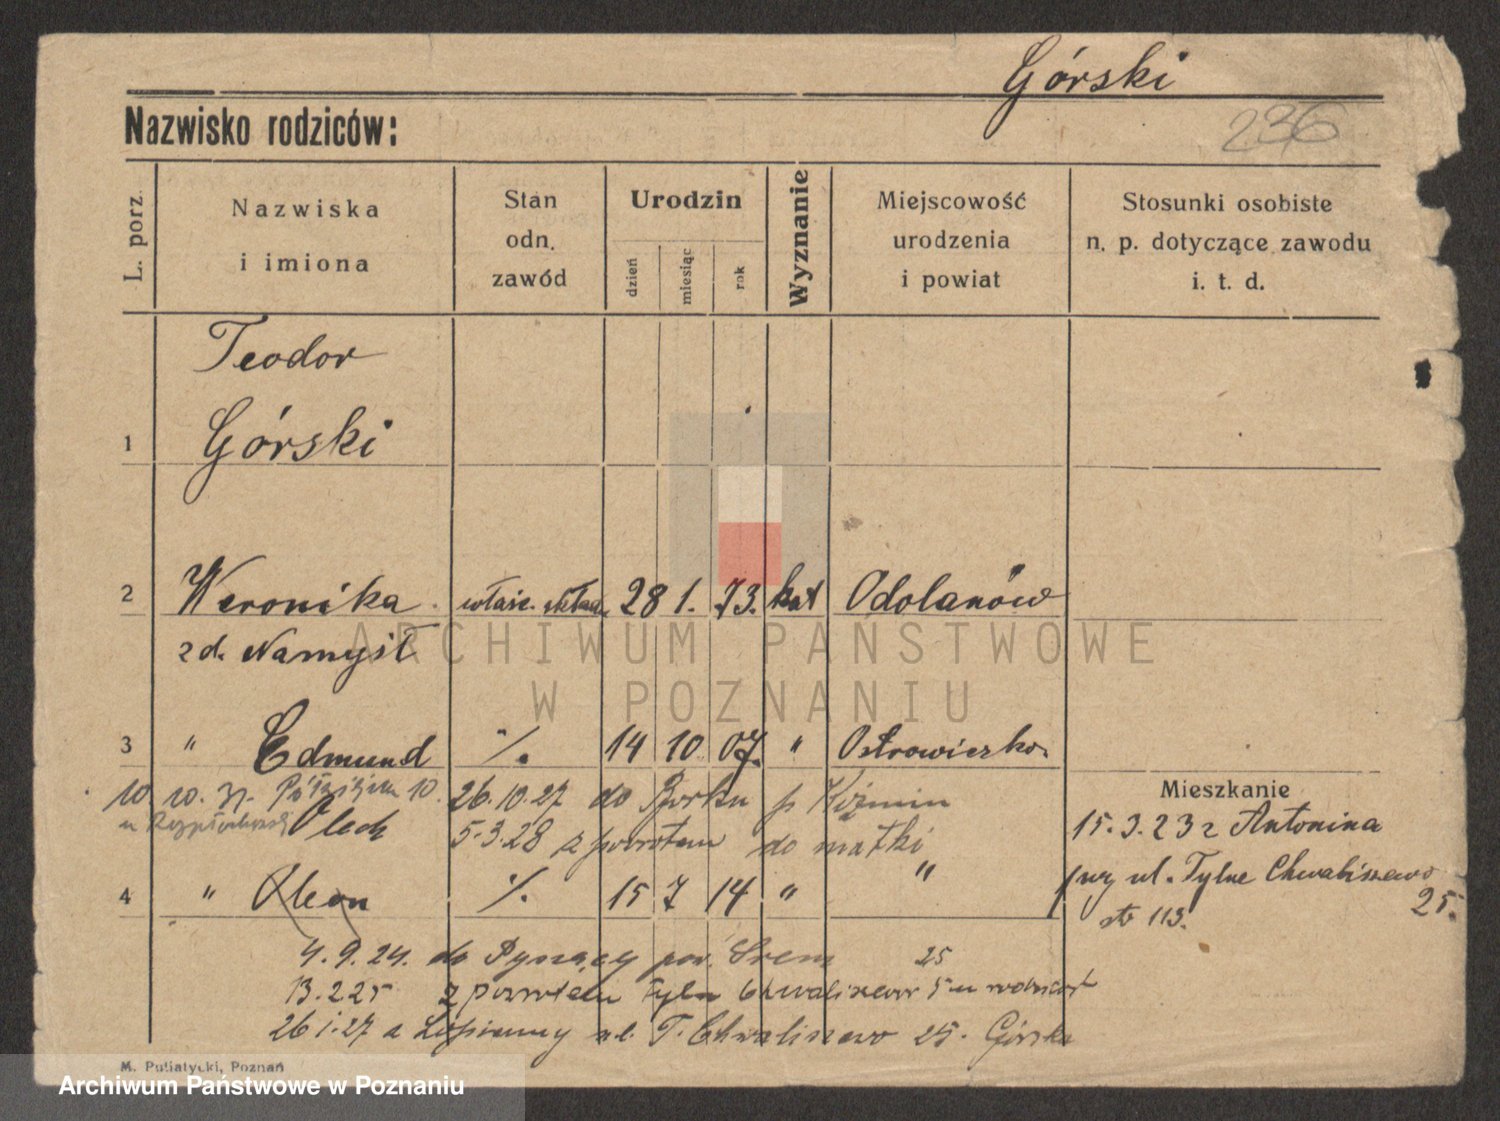 Górski
236
Nazwisko rodziców:
L. porz.
Nazwiska
i imiona
Stan
odn.
zawód
Urodzin
dzień
miesiąc
rok
Wyznanie
Miejscowość
urodzenia
i powiat
Stosunki osobiste
n. p. dotyczące zawodu
i. t. d.
Teodor
1 Górski
2 Weronika właśc. 28 1. 73. kat Odolanów
zd. Namyśl
3 " Edmund ·/. 14 10 07. "
Mieszkanie
26.10.27 do Borku p Koźmin
Olech
5.3.28 z powrotem do matki "
15.3.23 z Antonina
4 " ·/. 15 7 14 "
ul. Tylne Chwaliszewo
25.
str 113.
4.9.24. do pow. Śrem 25
13.2.25 z powrotem Tylne Chwaliszewo
26.1.27 ul. T. Chwaliszewo 25. Górska
M. Puliatycki, Poznań
ARCHIWUM PAŃSTWOWE
W POZNANIU
Archiwum Państwowe w Poznaniu